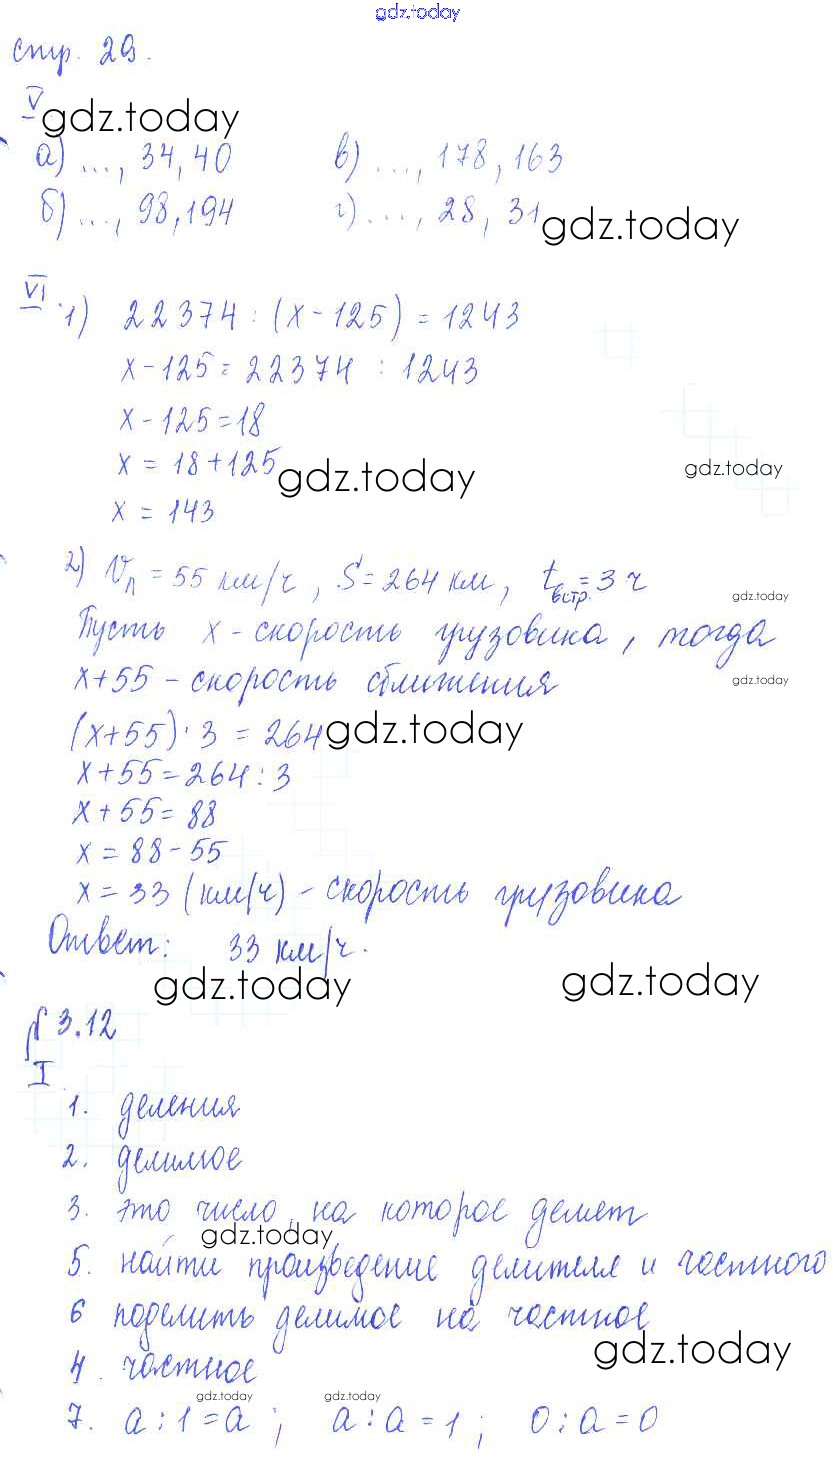 gdz.today
стр. 29.
V
gdz.today
а) ..., 34, 40 в) ..., 178, 163
б) ..., 98, 194 г) ..., 28, 31
gdz.today
VI. 1) 22374 : (x - 125) = 1243
x - 125 = 22374 : 1243
x - 125 = 18
x = 18 + 125
gdz.today gdz.today
x = 143
2) Vл = 55 км/ч, S = 264 км, tвстр. = 3 ч
gdz.today
Пусть x - скорость грузовика, тогда
x + 55 - скорость сближения
gdz.today
(x + 55) · 3 = 264
gdz.today
x + 55 = 264 : 3
x + 55 = 88
x = 88 - 55
x = 33 (км/ч) - скорость грузовика
Ответ: 33 км/ч.
gdz.today gdz.today
№ 3.12
I
1. деления
2. делимое
3. это число, на которое делят
gdz.today
5. найти произведение делителя и частного
6 поделить делимое на частное
gdz.today
4. частное
gdz.today gdz.today
7. a : 1 = a ; a : a = 1 ; 0 : a = 0